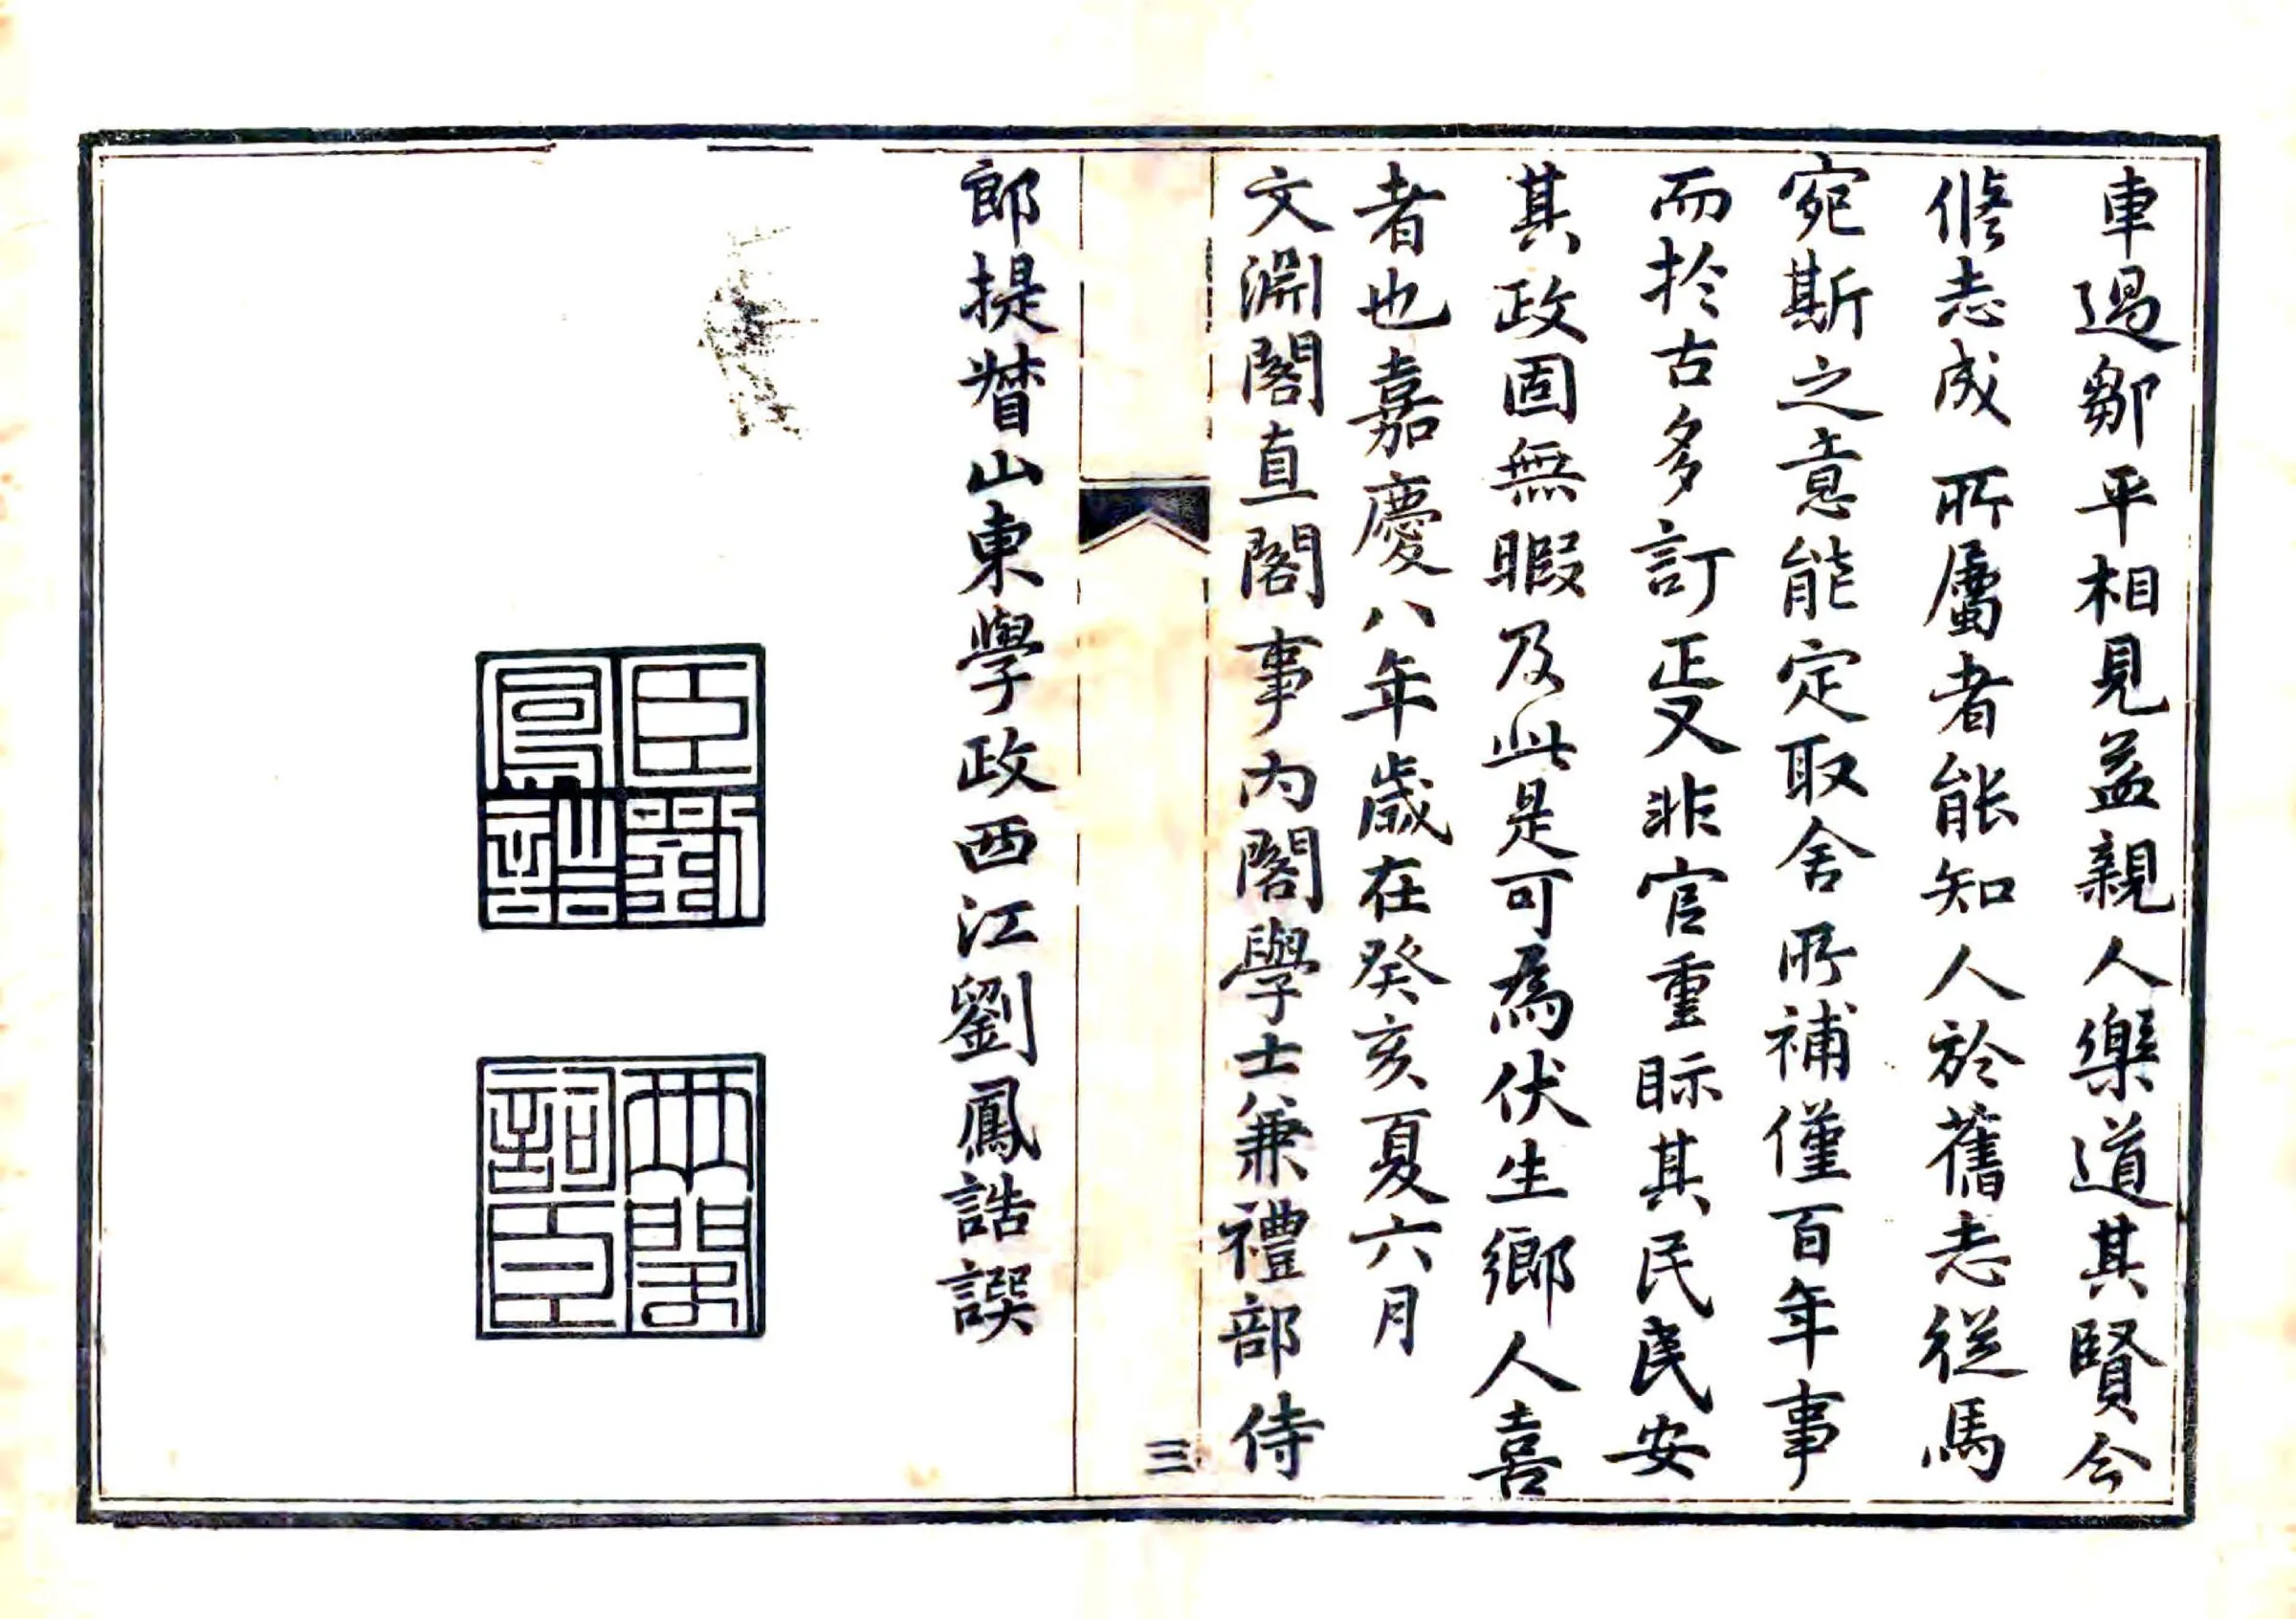 車過鄒平相見益親人樂道其賢今
脩志成所屬者能知人於舊志從馬
宛斯之意能定取舍所補僅百年事
而於古多訂正又非官重眎其民民安
其政固無暇及此是可為伏生鄉人喜
者也嘉慶八年歲在癸亥夏六月
文淵閣直閣事內閣學士兼禮部侍
三
郎提督山東學政西江劉鳳誥譔
臣劉鳳誥
兩閣詞臣